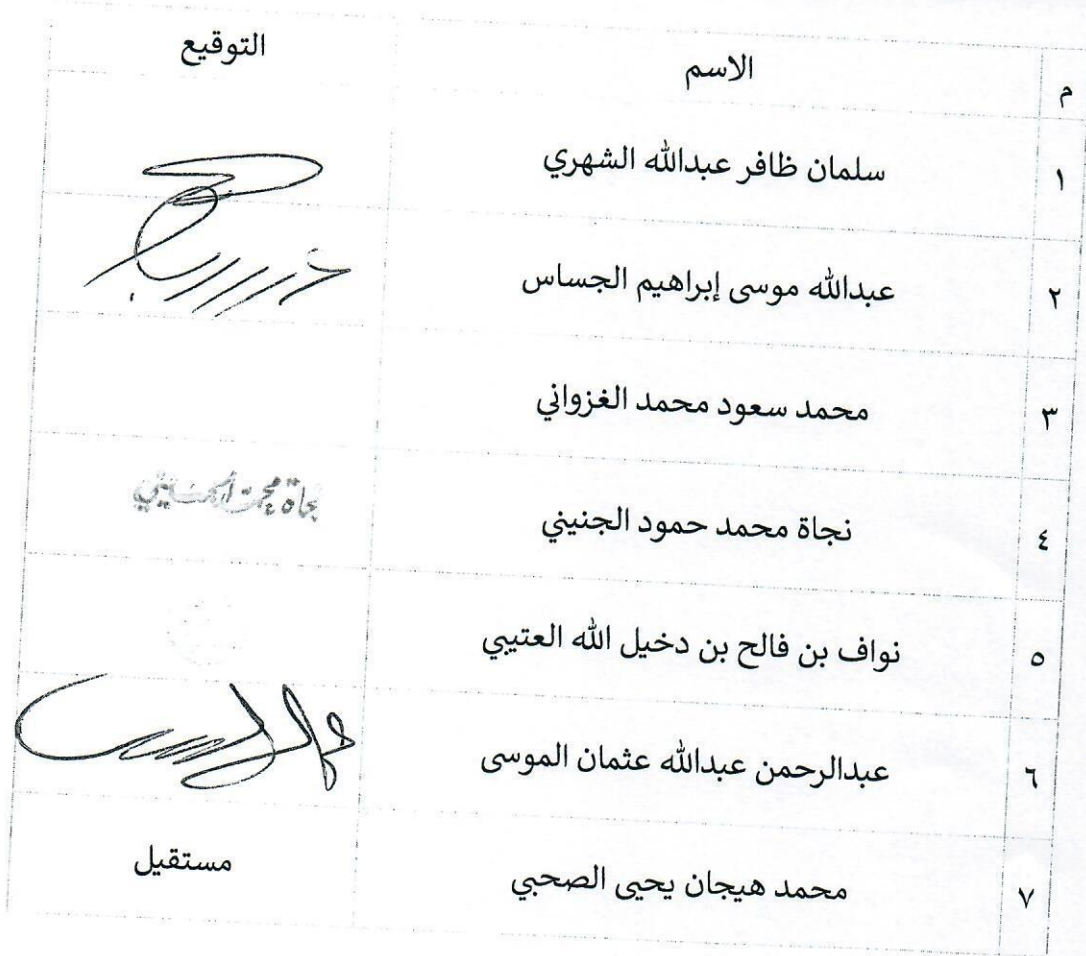 م الاسم التوقيع
١ سلمان ظافر عبدالله الشهري
٢ عبدالله موسى إبراهيم الجساس
٣ محمد سعود محمد الغزواني
٤ نجاة محمد حمود الجنيني نجاة محمد الجنيني
٥ نواف بن فالح بن دخيل الله العتيبي
٦ عبدالرحمن عبدالله عثمان الموسى
٧ محمد هيجان يحيى الصحبي مستقيل